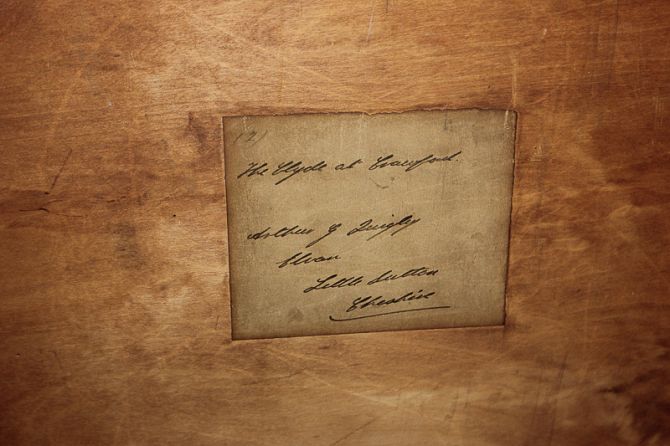 (2)
The Clyde at Crawford.
Arthur G Quigley
Elvan
Little Sutton
Cheshire